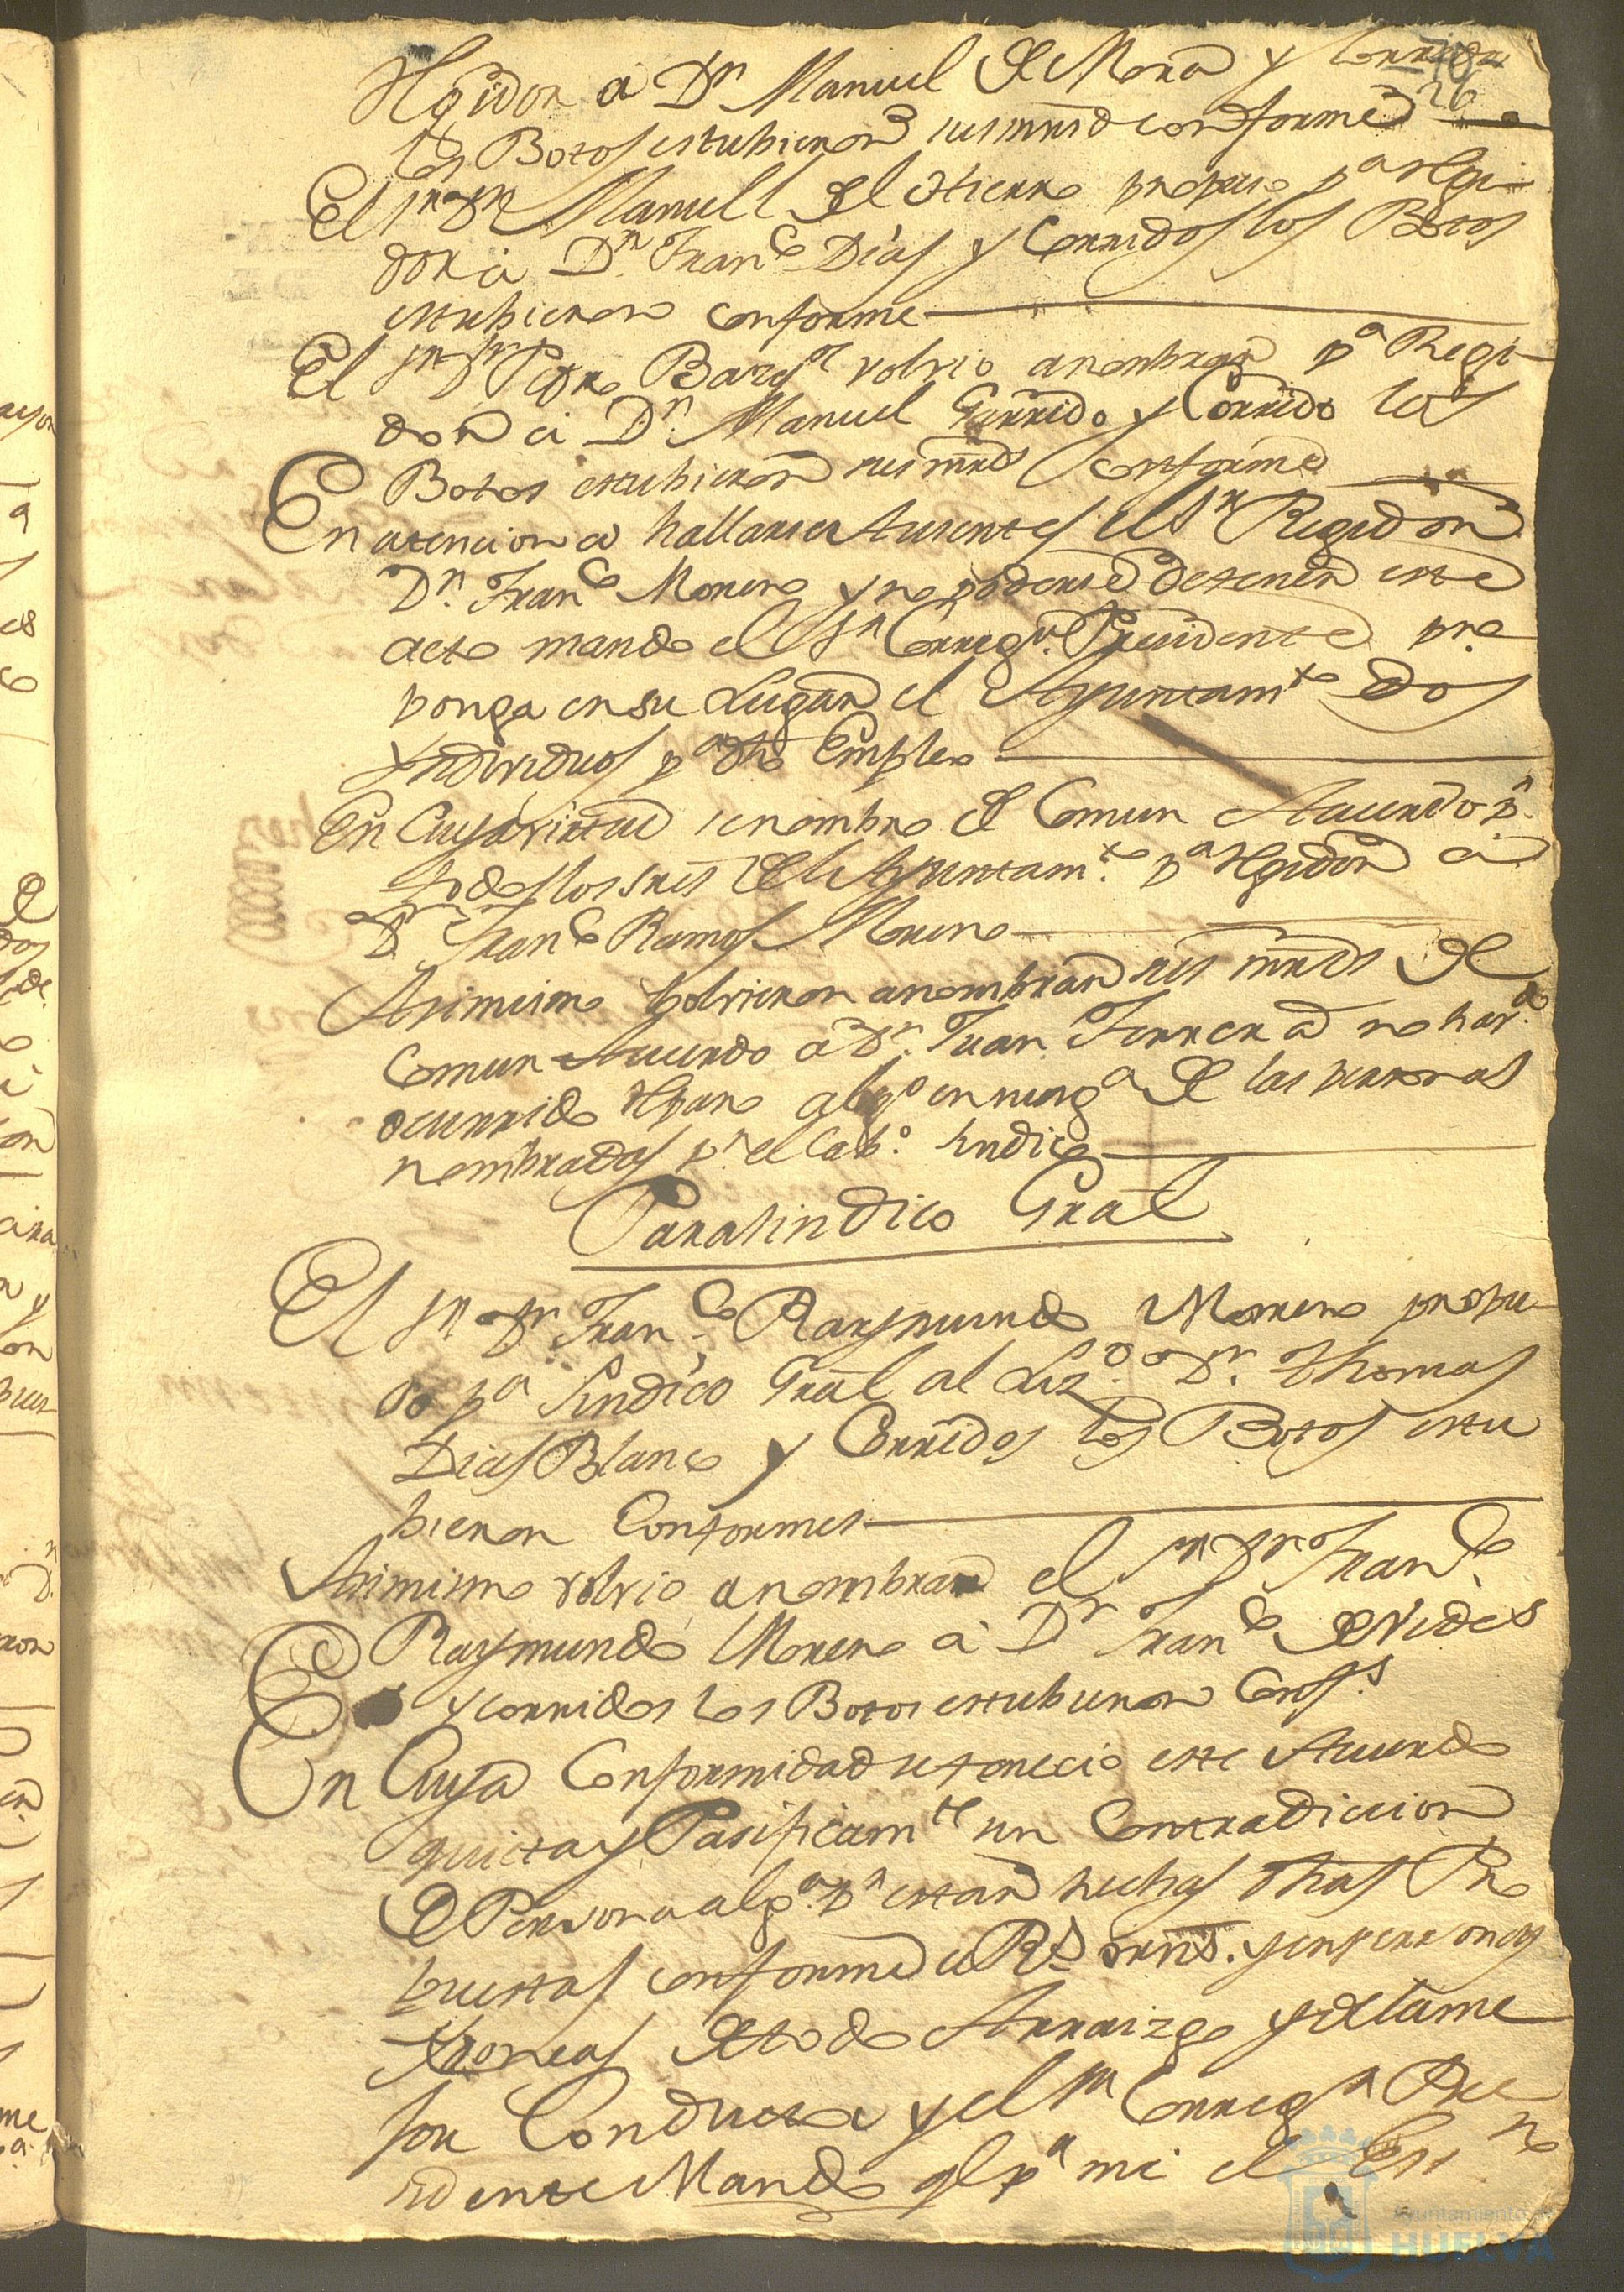 Rgidor a Dn Manuel de Mora y corridos
los Botos estubieron sus mrds conforme
El sr Dn Manuel del Hierro propuso pa Regi-
dor a Dn Franco Dias y Corridos los Botos
estubieron conforme
El sr Dn Pedro volvio a nombrar pa Regi-
dor a Dn Manuel Garrido y Corrido los
Botos estubieron sus mrds conforme
En atencion a hallarse Ausente el Sr Regidor
Dn Franco Moreno y no poderse detener este
acto mando el Sr Corregr Presidente pro
ponga en su Lugar el Ayuntamto dos
Yndividuos pa dho Empleo
En Cuya virtud se nombro de Comun Acuerdo pr
todos los sres del Ayuntamto pa Rgidor a
Dn Franco Ramos Moreno
Asimismo bolvieron a nombrar sus mrds de
comun Acuerdo a Dn Juan Ferrera no havdo
ocurrido Rparo algo en ninga de las personas
nombradas pr el Cabo Sindico
Para Sindico Gral
El sr Dn Franco Raymundo Moreno propu-
so pa Sindico Gral al Lizdo Dn Thomas
Dias Blanco y Corridos los Botos estu
bieron Conformes
Asimismo volvio a nombrar el sr Dn Franco
Raymundo Moreno a Dn Franco de Vides
y corridos los Botos estubieron Confs
En Cuya Conformidad se feneció este Acuerdo
quieta y Pasificamte sin Contradiccion
de Persona alga pr estar hechas dhas Pro
puestas conforme a Rs orns. y en personas
Ydoneas de todo Arraizgo y de la me
jor Conducta y el sr Corregr Pre
sidente Mando qe pr mi el Essno
Ayuntamiento de
HUELVA